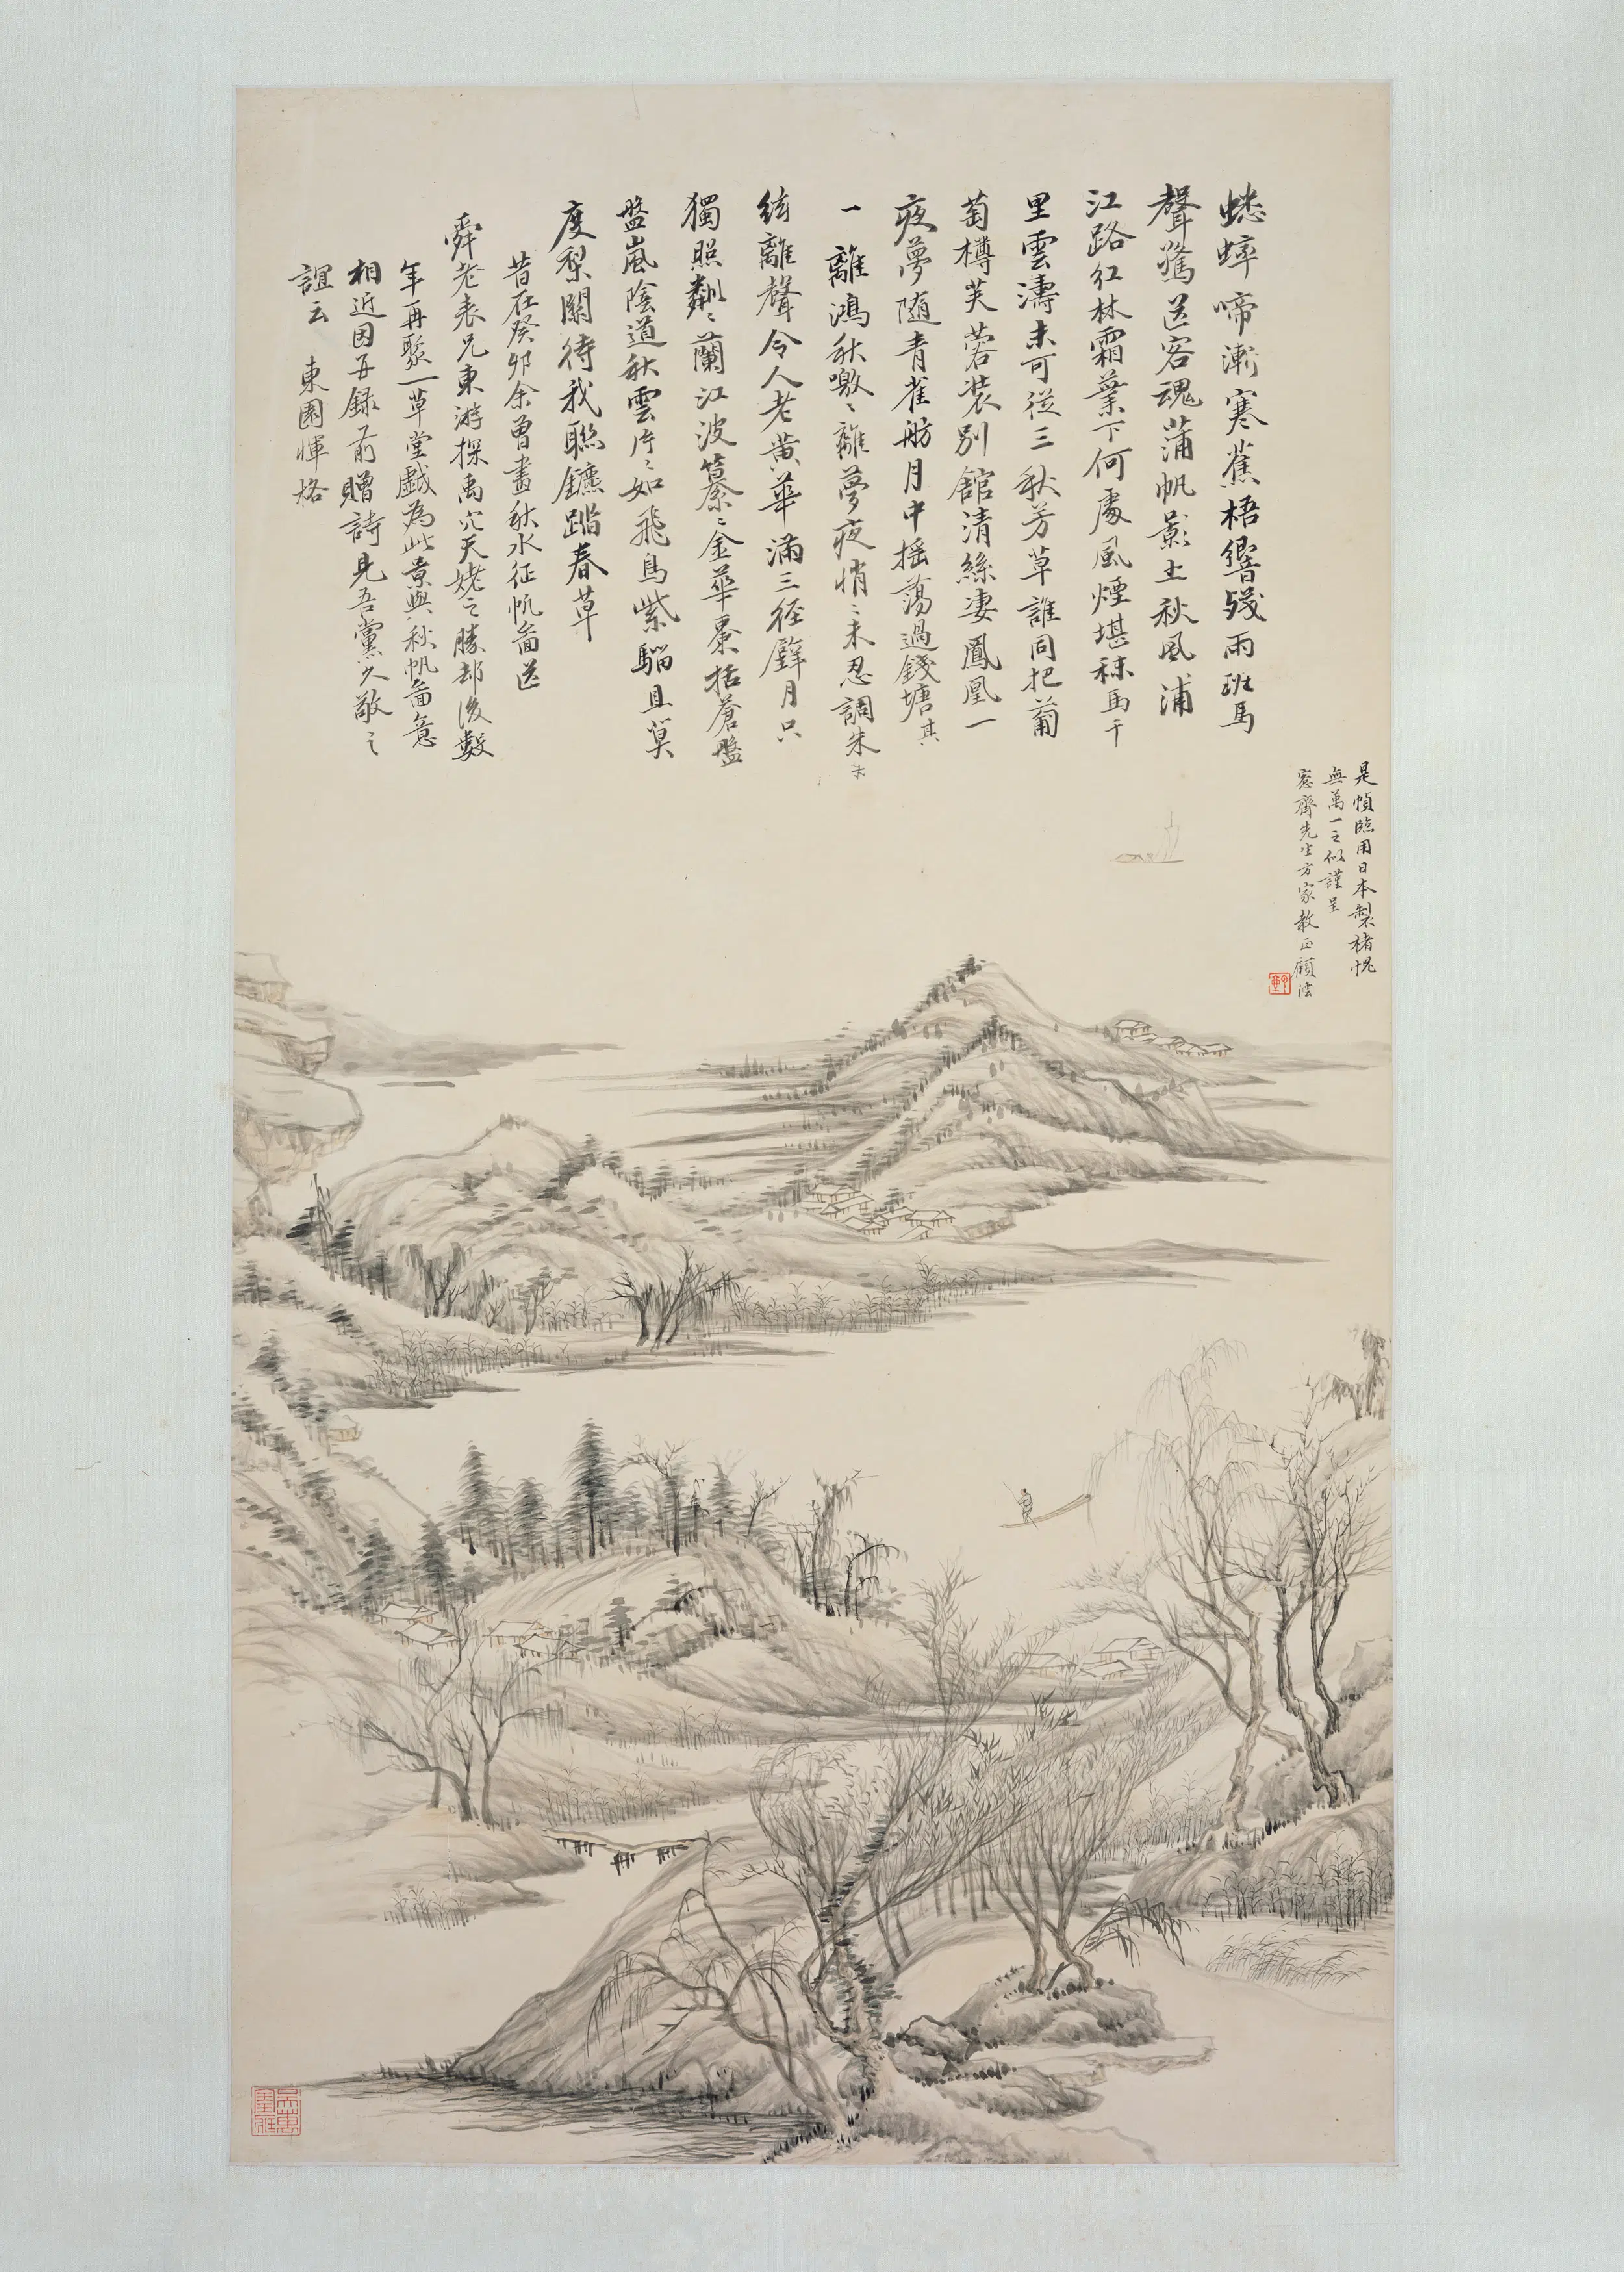 蟋蟀啼漸寒蕉梧響殘雨班馬
聲驚送客魂蒲帆影土秋風浦
江路紅林霜葉下何處風煙堪秣馬千
里雲濤未可從三秋芳草誰同把葡
萄樽芙蓉裝別館清絲凄鳳凰一
夜夢随青雀舫月中摇蕩過錢塘其
一離鴻秋嗷〻離夢夜悄〻未忍調朱
絃離聲令人老黄華滿三徑辟月只
獨照粼〻蘭江波纂〻金華棗括蒼盤
盤嵐陰道秋雲片〻如飛鳥紫騮且莫
度梨關待我聯鑣蹋春草
昔在癸卯余曾畫秋水征帆啚送
舜老表兄東游探禹穴天姥之勝却後數
年再聚一草堂戲為此景與秋帆啚意
相近因再録前贈詩見吾黨久敬之
誼云 東園惲格
是幀臨用日本製楮愧
無萬一之似謹呈
窓齋先生方家教正顧澐